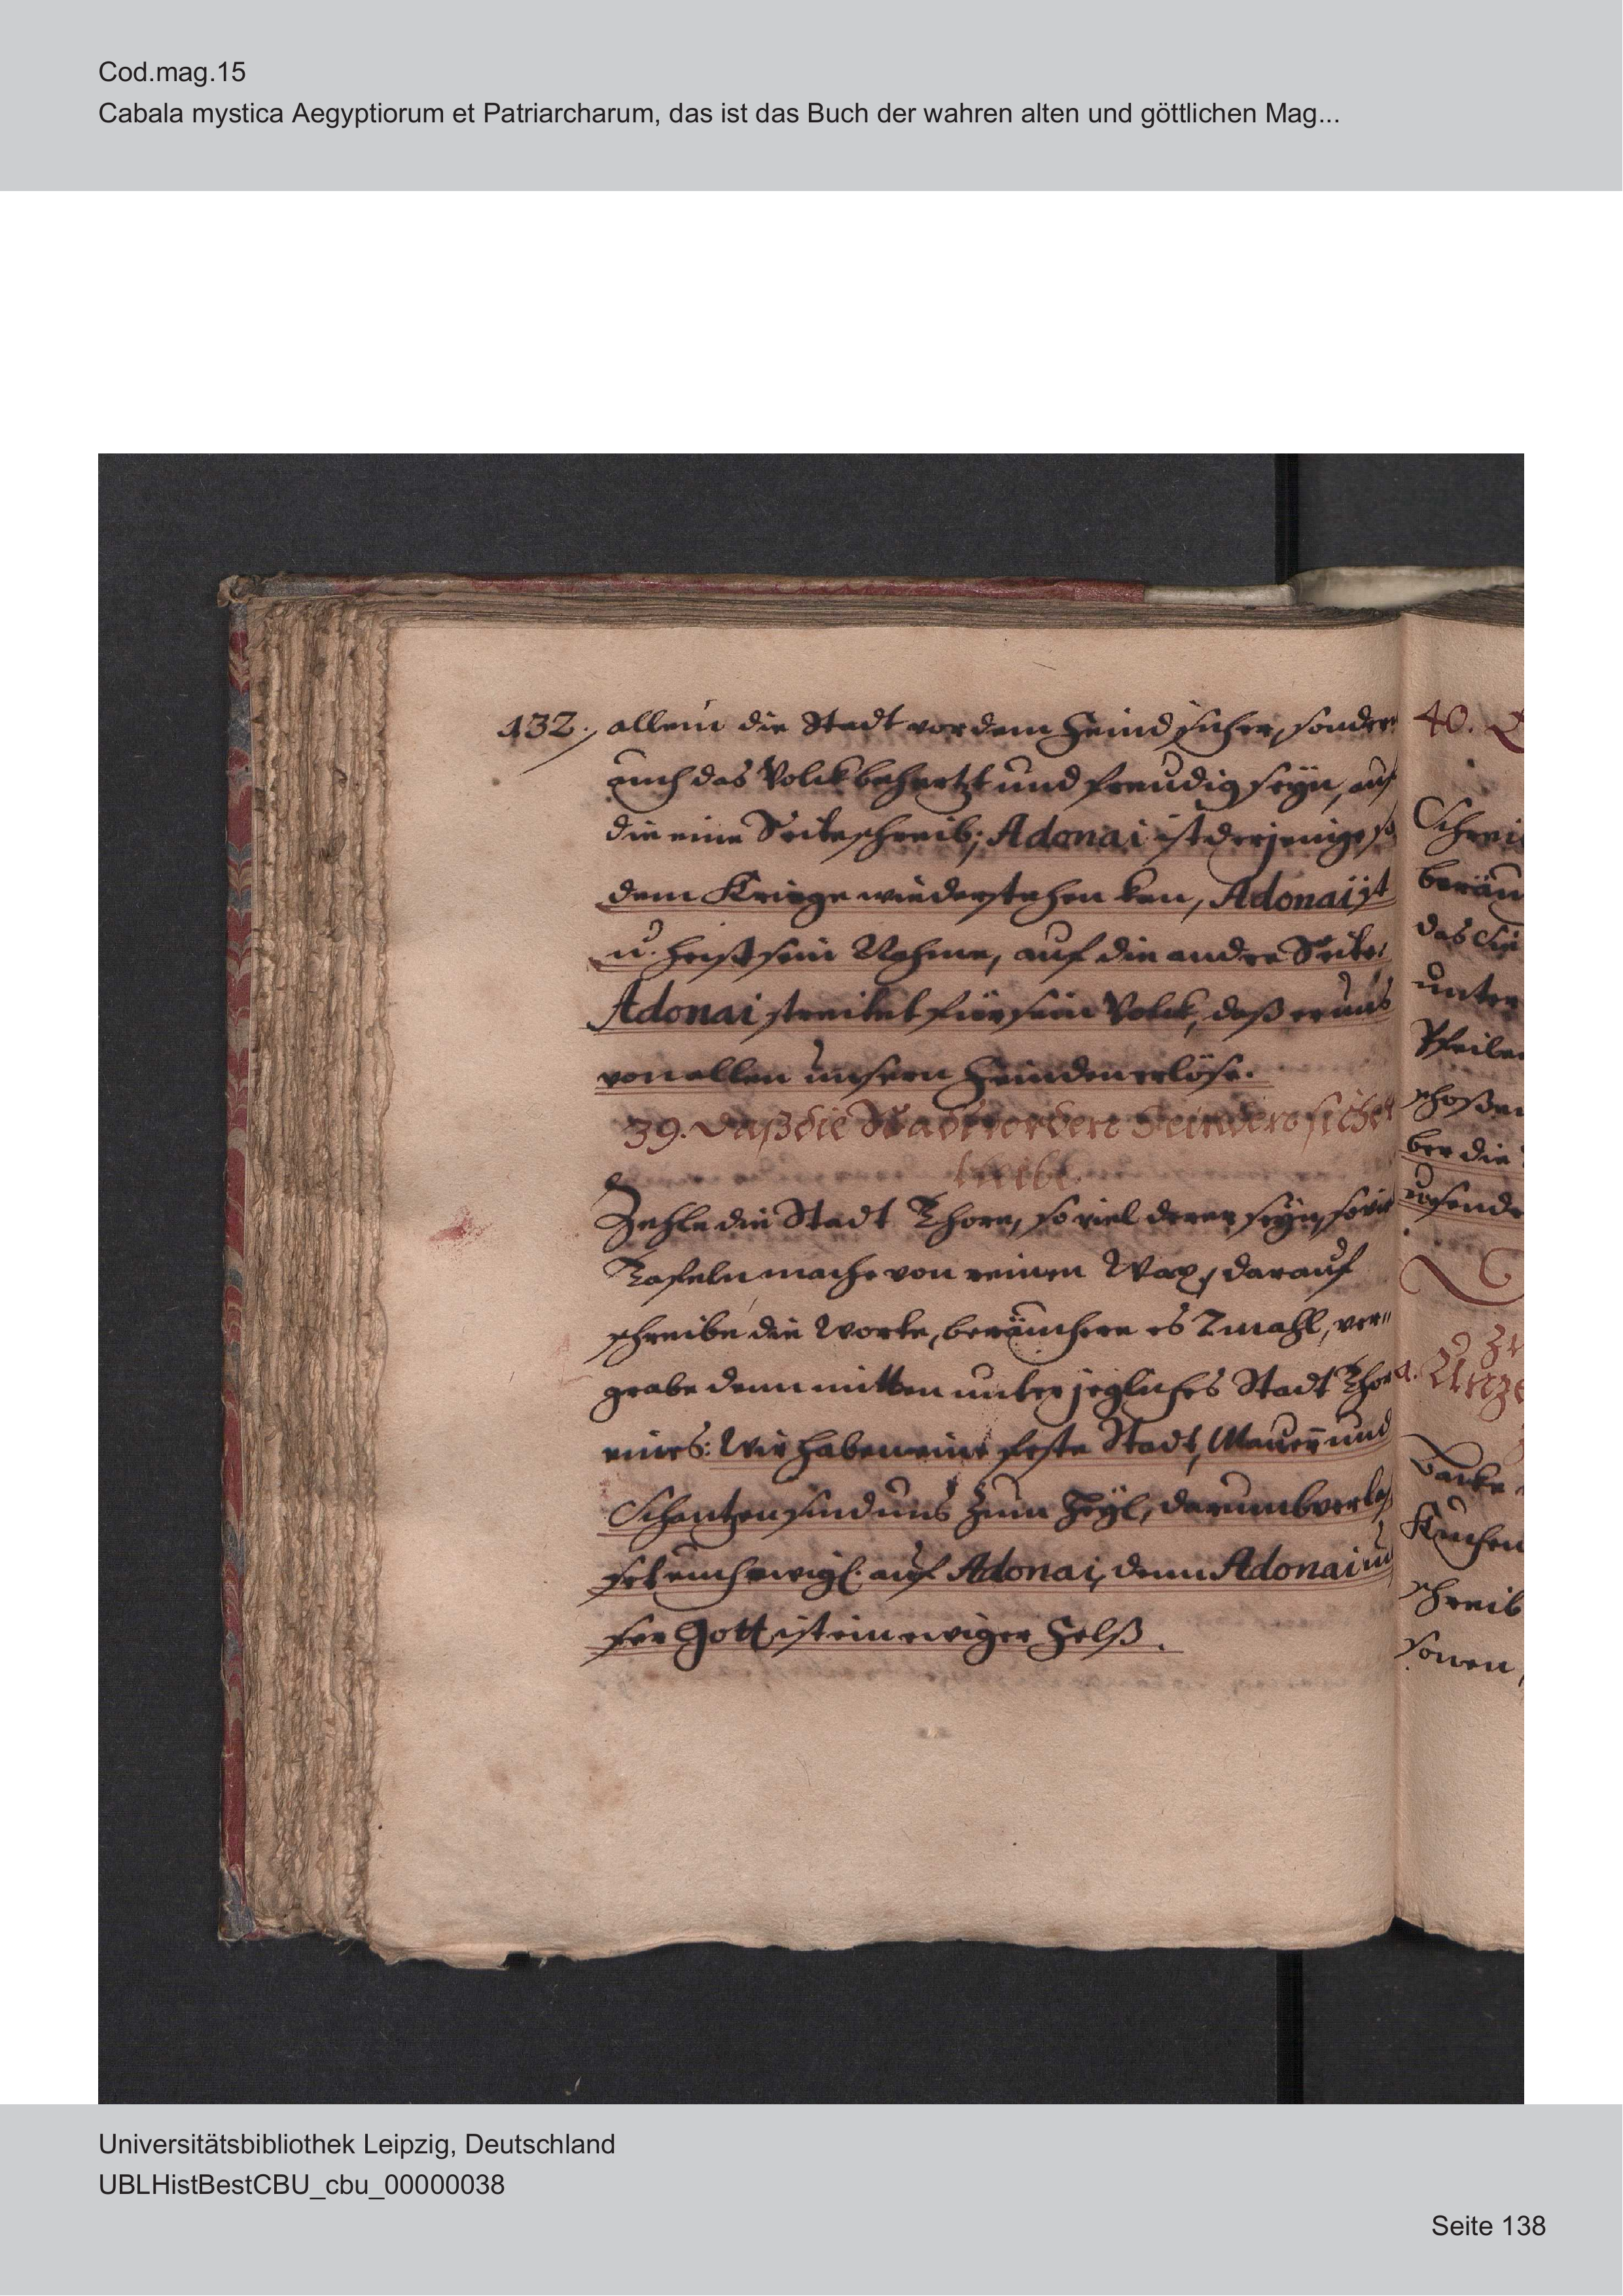 Cod.mag.15
Cabala mystica Aegyptiorum et Patriarcharum, das ist das Buch der wahren alten und göttlichen Mag...
132. allein die Stadt vor dem Feind sicher, sondern
auch das Volck behertzt und freudig seyn, auf
die eine Seite schreib; Adonai ist derjenige so
dem Kriege wiederstehen kan, Adonai ist
u. heist sein Nahme, auf die andre Seite:
Adonai streitet für sein Volck, daß er uns
von allen unsern Feinden erlöse.
39. Daß die Stadt vor dem Feinde sicher
bleibe
Zehle die Stadt Thore, so viel deren seyn, so viel
Tafeln mache von reinen Wax, darauf
schreibe die Worte, beräuchere es 7mahl, ver"
grabe denn mitten unter jegliches Stadt Thor
eines: Wir haben eine feste Stadt, Mauern und
Schantzen sind uns zum Heyl, darumb verlas
set euch ewigl. auf Adonai, denn Adonai un
ser Gott ist ein ewiger Felß.
40.
Schrei
beräu
das
unter
Pfeile
schoßen
ber die
a. Unze
Kuchen
schreib
Universitätsbibliothek Leipzig, Deutschland
UBLHistBestCBU_cbu_00000038
Seite 138